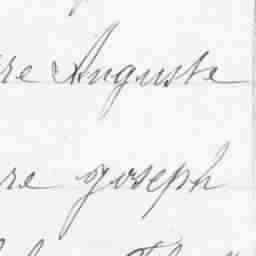 re Auguste
re joseph